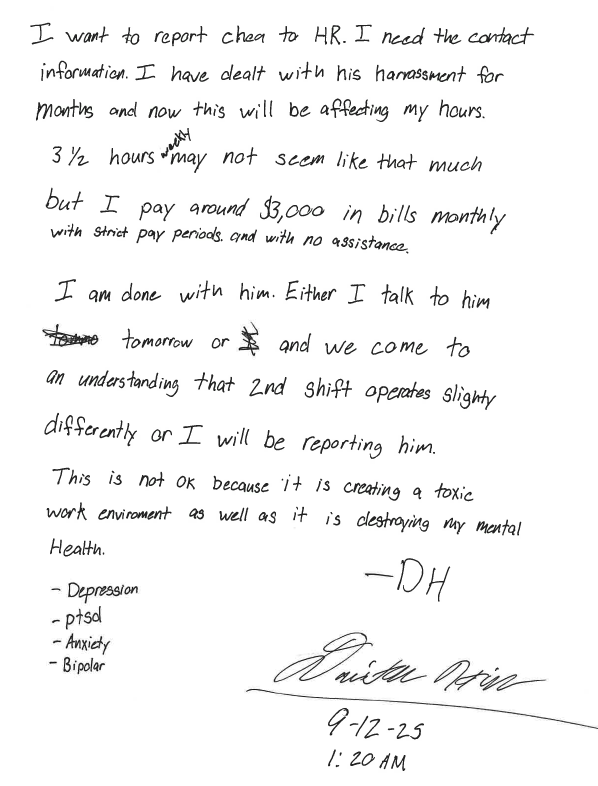 I want to report chea to HR. I need the contact
information. I have dealt with his harrassment for
months and now this will be affecting my hours.
3 ½ hours weekly may not seem like that much
but I pay around $3,000 in bills monthly
with strict pay periods. and with no assistance.
I am done with him. Either I talk to him
tomorrow or and we come to
an understanding that 2nd shift operates slighty
differently or I will be reporting him.
This is not ok because it is creating a toxic
work enviroment as well as it is destroying my mental
Health.
—DH
- Depression
- ptsd
- Anxiety
- Bipolar
9-12-25
1:20 AM